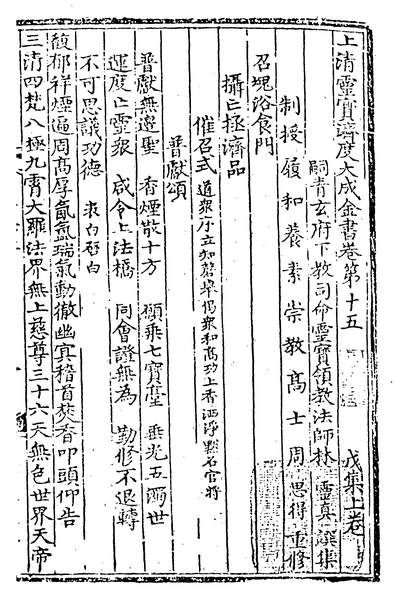 上清靈寶濟度大成金書卷第十五 戊集上卷
嗣青玄府下教司命靈寶領教法師林 靈真 譔集
制授履和養素崇教高士周 思得 重修
召魂浴食門
攝亡拯濟品
催召式 道衆序立知磬舉偈衆和高功上香洒淨點名官將
普獻頌
普獻無邊聖 香煙散十方 願乘七寶臺 垂光五濁世
運度亡靈衆 咸令上法橋 同會證無為 勤修不退轉
不可思議功德 表白啓白
馥郁祥煙遍周高厚氤氳瑞氣動徹幽冥稽首焚香叩頭仰告
三清四梵八極九霄大羅法界無上慈尊三十六天無色世界天帝